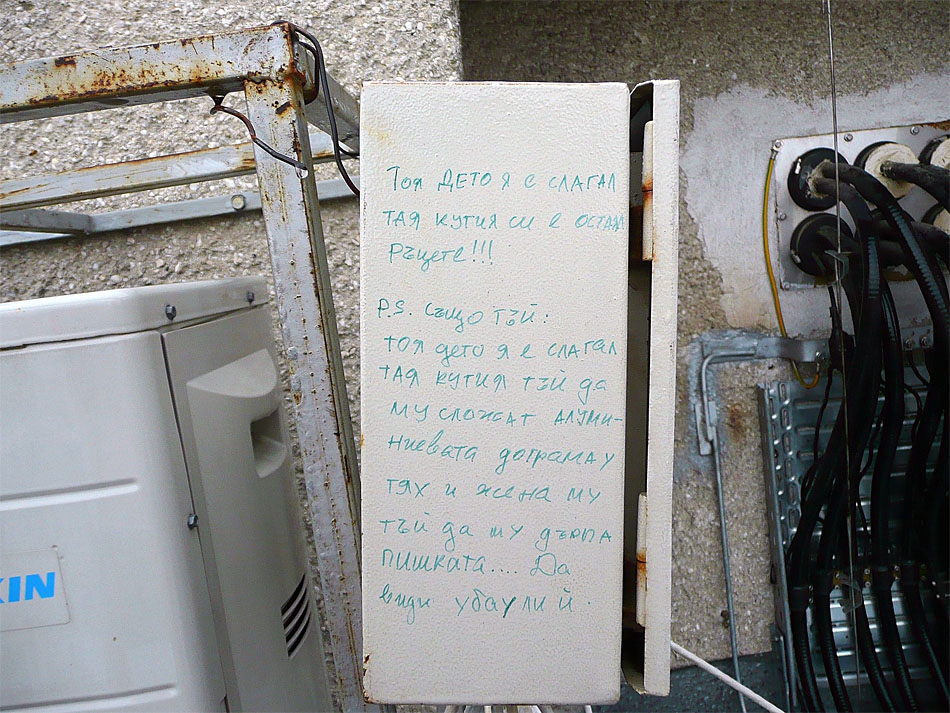 KIN
Тоя ДЕТО Я Е СЛАГАЛ
ТАЯ КУТИЯ СИ Е ОСТАВИЛ
Ръцете!!!
P.S. Също ТЪЙ:
ТОЯ дето я е СЛАГАЛ
ТАЯ КУТИЯ ТЪЙ да
МУ СЛОЖАТ АЛУМИ-
НИЕВАТА дограма У
ТЯХ и жена му
ТЪЙ да му дърпа
ПИШКАТА.... Да
види убау ли й.